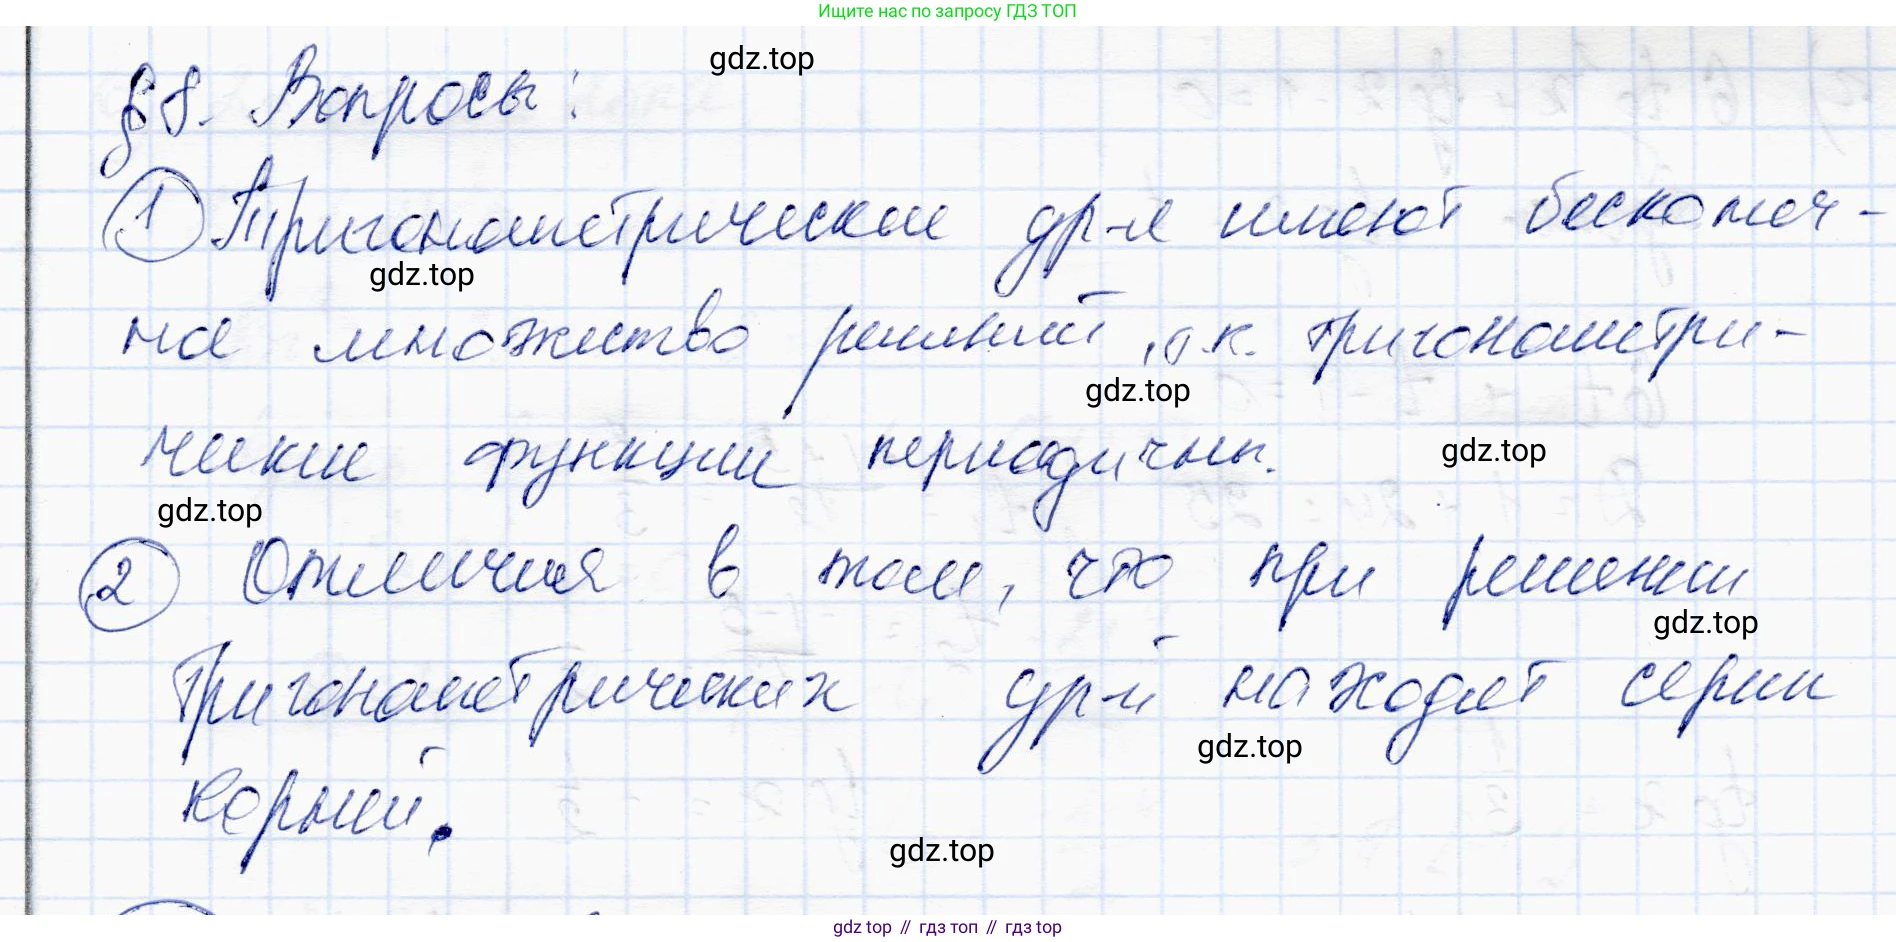 Ищите нас по запросу ГДЗ ТОП
gdz.top
§8. Вопросы:
① Тригонометрические ур-я имеют бесконеч-
gdz.top
ное множество решений, т.к. тригонометри-
gdz.top
ческие функции периодичны.
gdz.top
gdz.top
② Отличия в том, что при решении
gdz.top
тригонометрических ур-й находят серии
gdz.top
корней.
gdz.top
gdz top // гдз топ // гдз top